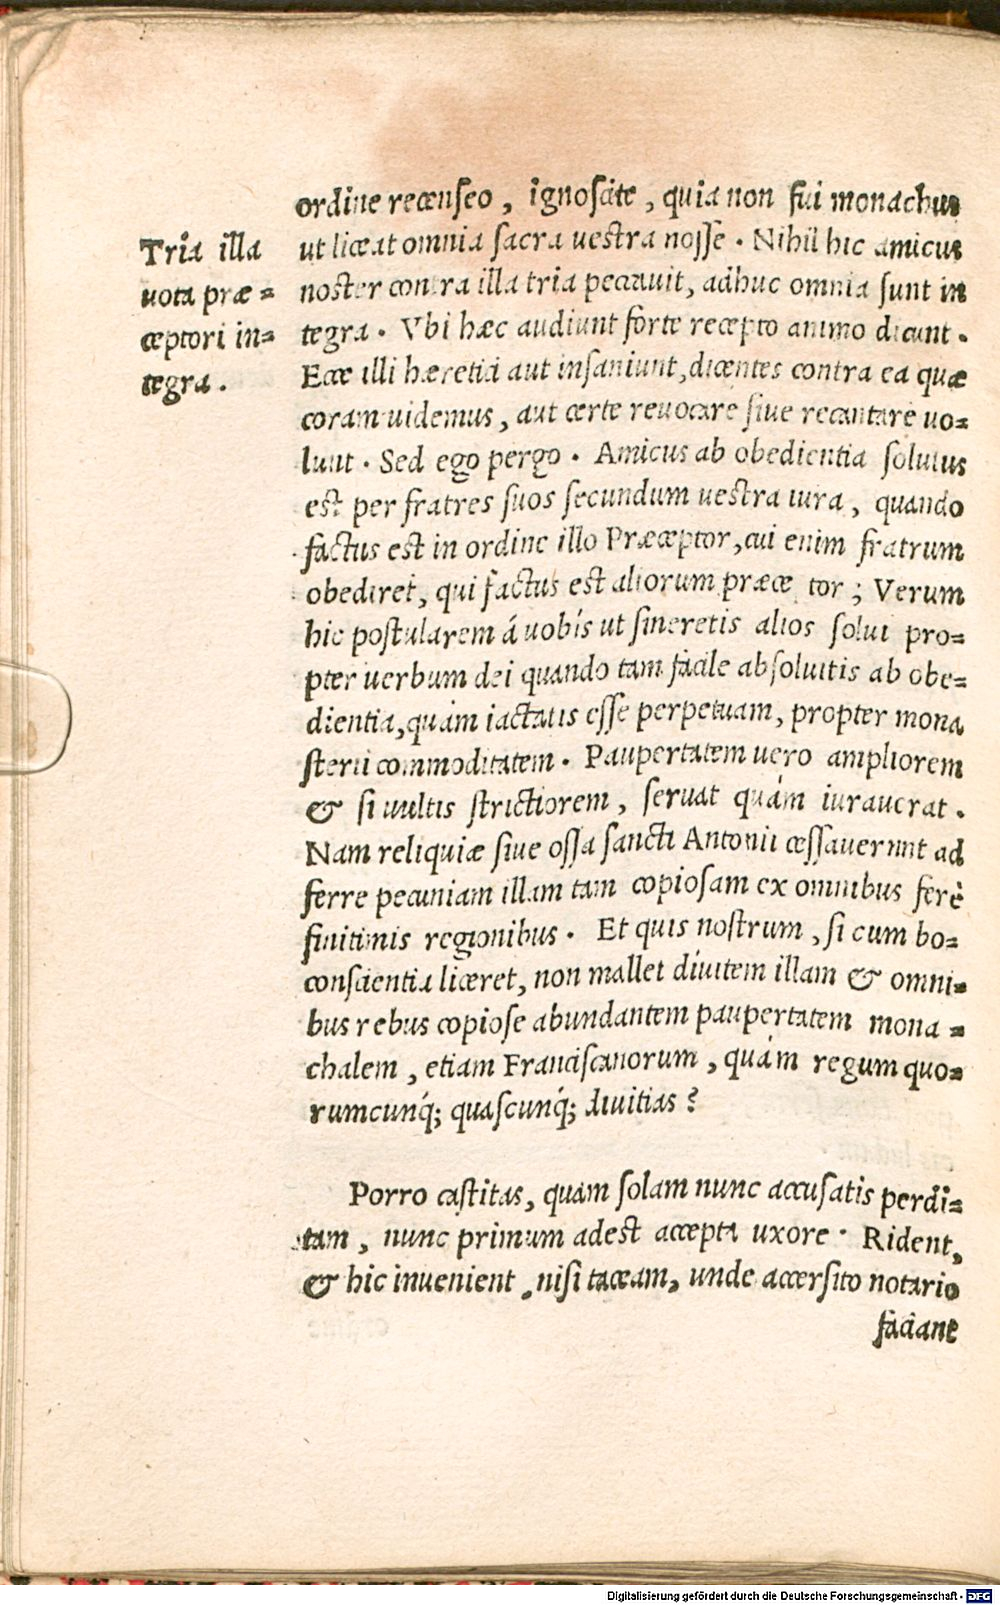 ordine recenseo, ignoscite, quia non fui monachus
Tria illa
uota præ=
ceptori in=
tegra.
ut liceat omnia sacra uestra nosse. Nihil hic amicus
noster contra illa tria peccauit, adhuc omnia sunt in
tegra. Vbi hæc audiunt forte recepto animo dicunt.
Ecce illi hæretici aut insaniunt, dicentes contra ea quæ
coram uidemus, aut certe reuocare siue recantare uo=
lunt. Sed ego pergo. Amicus ab obedientia solutus
est per fratres suos secundum uestra iura, quando
factus est in ordine illo Præceptor, cui enim fratrum
obediret, qui factus est aliorum præce tor; Verum
hic postularem á uobis ut sineretis alios solui pro=
pter uerbum dei quando tam facile absoluitis ab obe=
dientia, quàm iactatis esse perpetuam, propter mona
sterii commoditatem. Paupertatem uero ampliorem
& si uultis strictiorem, seruat quàm iurauerat.
Nam reliquiæ siue ossa sancti Antonii cessauerunt ad
ferre pecuniam illam tam copiosam ex omnibus ferè
finitimis regionibus. Et quis nostrum, si cum bo=
conscientia liceret, non mallet diuitem illam & omni=
bus rebus copiose abundantem paupertatem mona=
chalem, etiam Franciscanorum, quàm regum quo=
rumcunq́; quascunq́; diuitias?
Porro castitas, quam solam nunc accusatis perdi=
tam, nunc primum adest accepta uxore. Rident,
& hic inuenient, nisi taceam, unde accersito notario
faciant
Digitalisierung gefördert durch die Deutsche Forschungsgemeinschaft - DFG